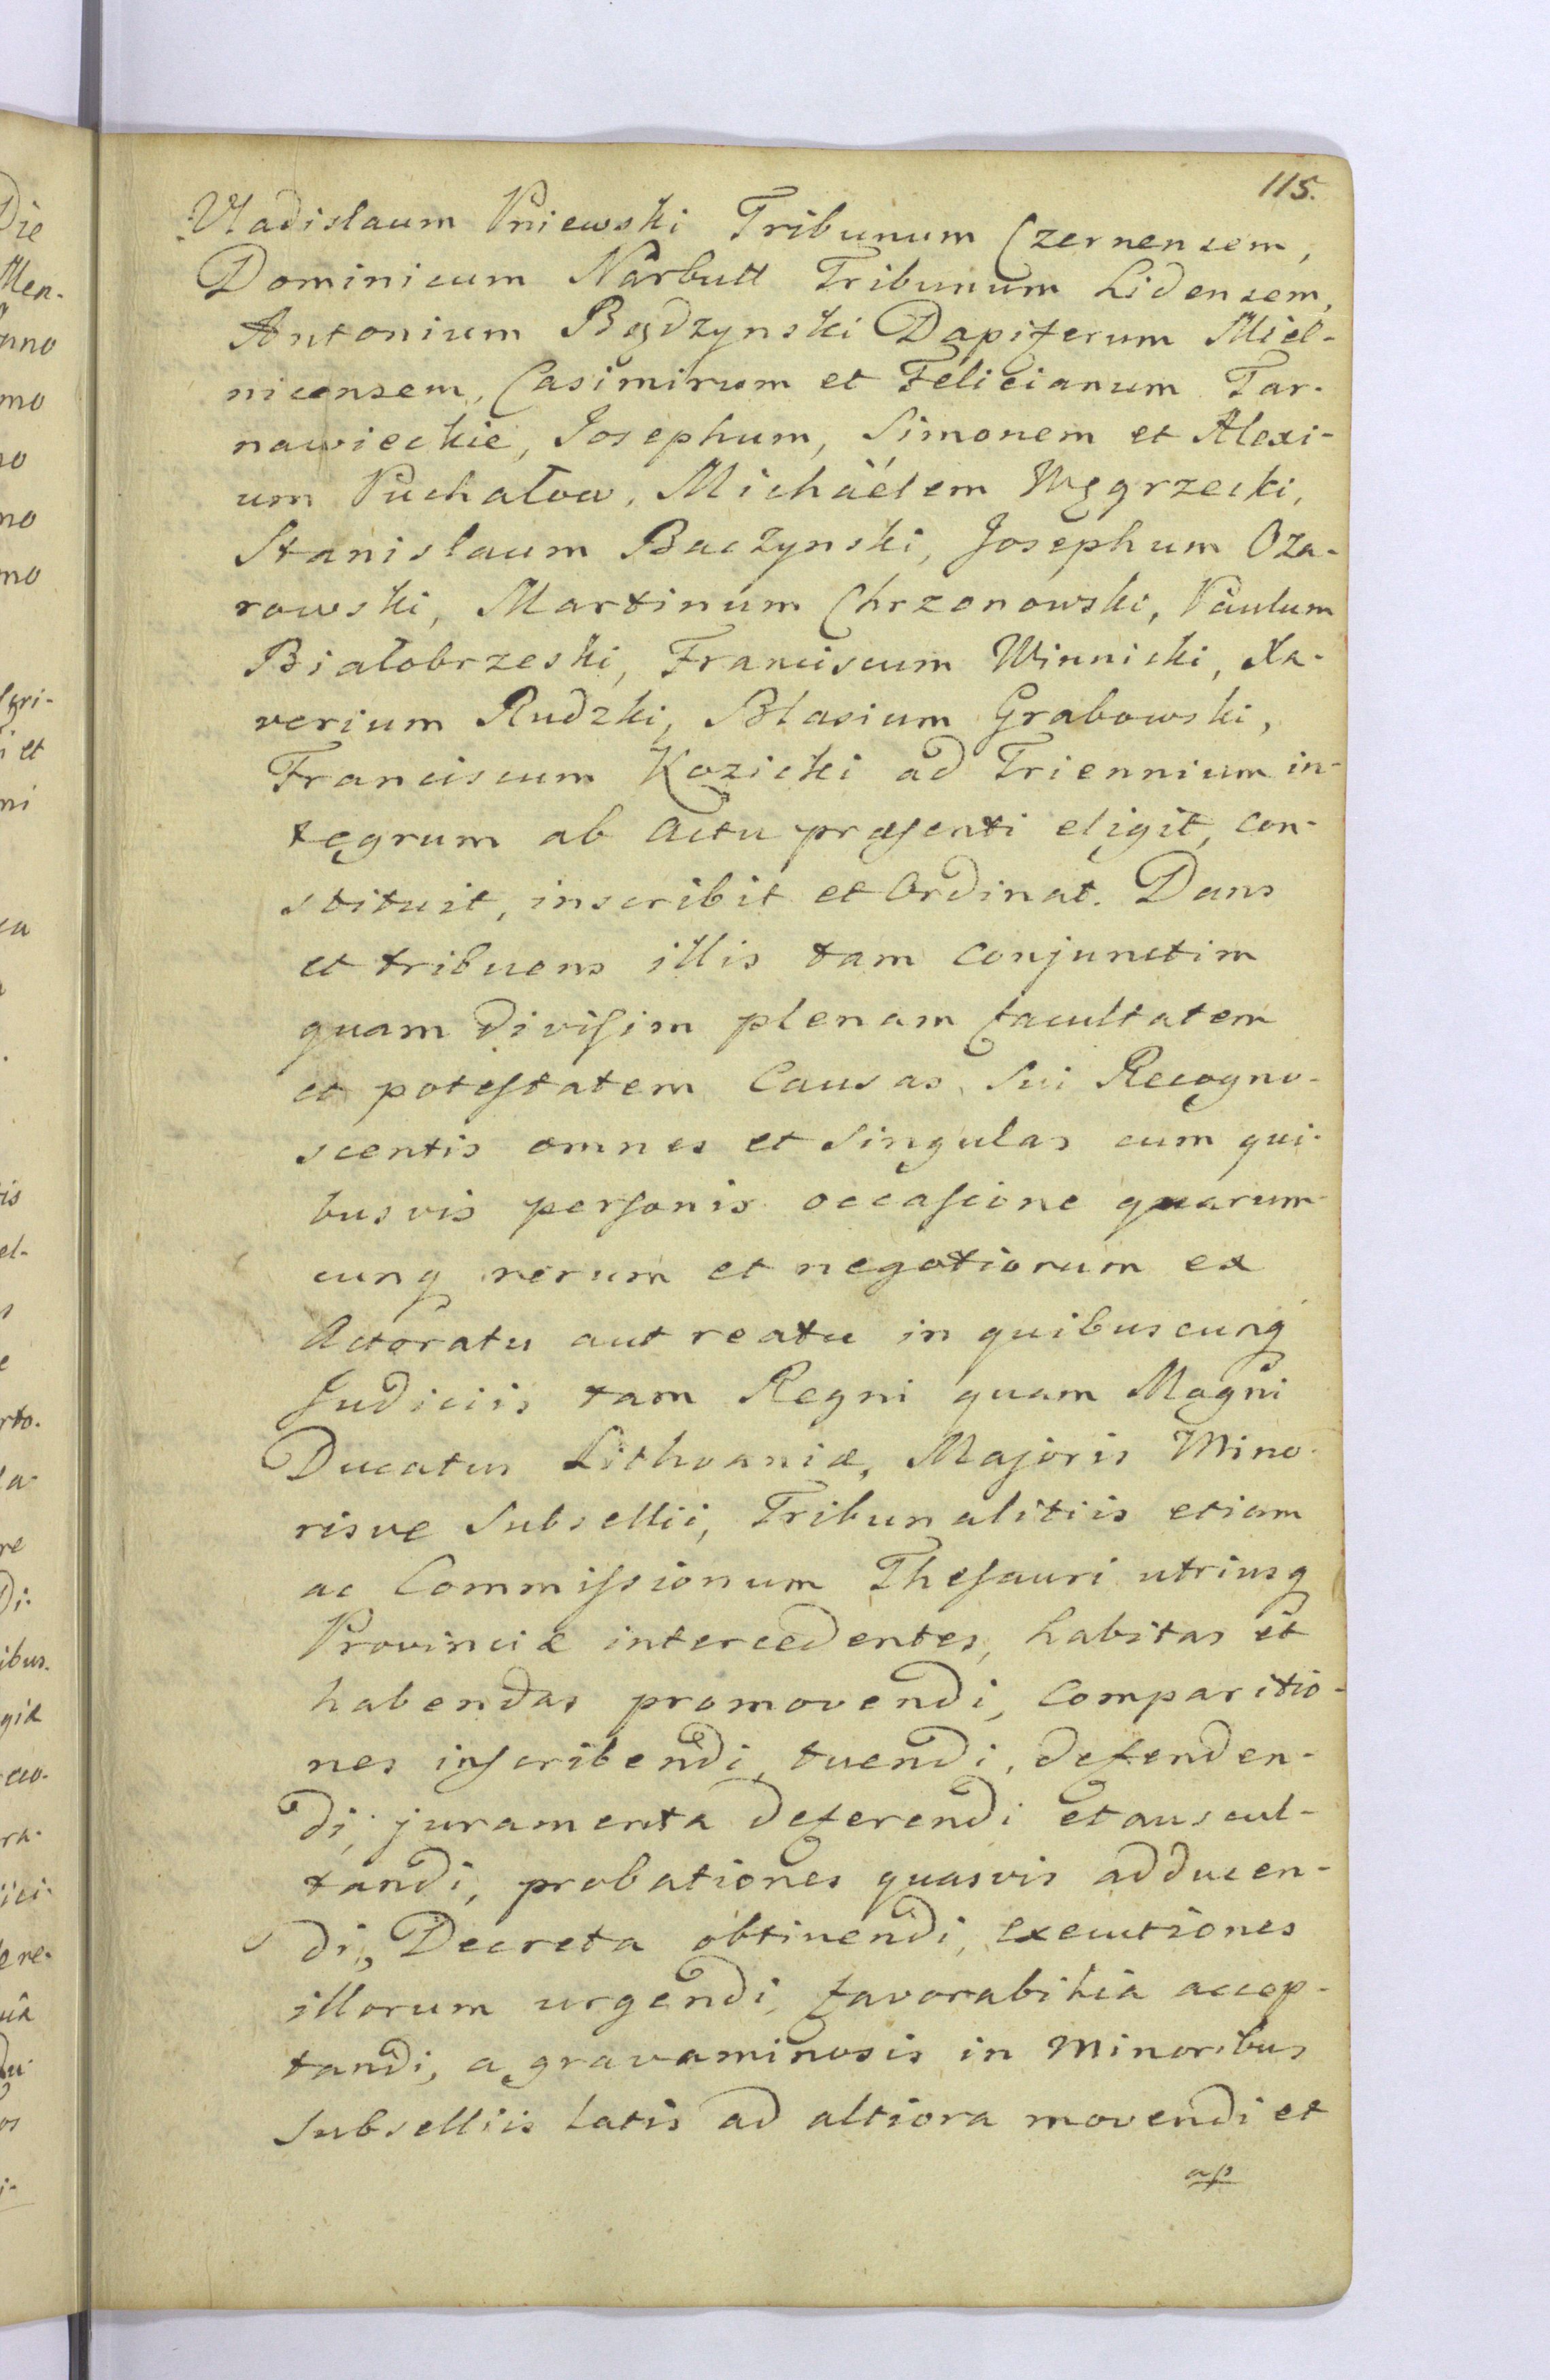 115.
Vladislaum Pniewski Tribunum Czernensem,
Dominicum Narbutt Tribunum Lidensem,
Antonium Bądzynski Dapiferum Miel-
nicensem, Casimirum et Felicianum Tar-
nawieckie, Josephum, Simonem et Alexi-
um Puchałow, Michäelem Węgrzecki,
Stanislaum Baczynski, Josephum Oza-
rowski, Martinum Chrzonowski, Paulum
Białobrzeski, Franciscum Winnicki, Xa-
verium Rudzki, Blasium Grabowski,
Franciscum Kozicki ad Triennium in-
tegrum ab Actu præsenti eligit, con-
stituit, inscribit et Ordinat. Dans
et tribuens illis tam conjunctim
quam divisim plenam facultatem
et potestatem Causas Sui Recogno-
scentis omnes et Singulas cum qui-
busvis personis occasione quarum-
cunq rerum et negotiorum ex
Actoratu aut reatu in quibuscunq
Judiciis tam Regni quam Magni
Ducatus Lithvaniæ, Majoris Mino-
risve Subsellii, Tribunalitiis etiam
ac Commissionum Thesauri utriusq
Provinciæ intercedentes, habitas et
habendas promovendi, Comparitio-
nes inscribendi, tuendi, defenden-
di, juramenta deferendi et auscul-
tandi, probationes quasvis adducen-
di, Decreta obtinendi, executiones
illorum urgendi, favorabilia accep-
tandi, a gravaminosis in Minoribus
Subselliis latis ad altiora movendi et
ap